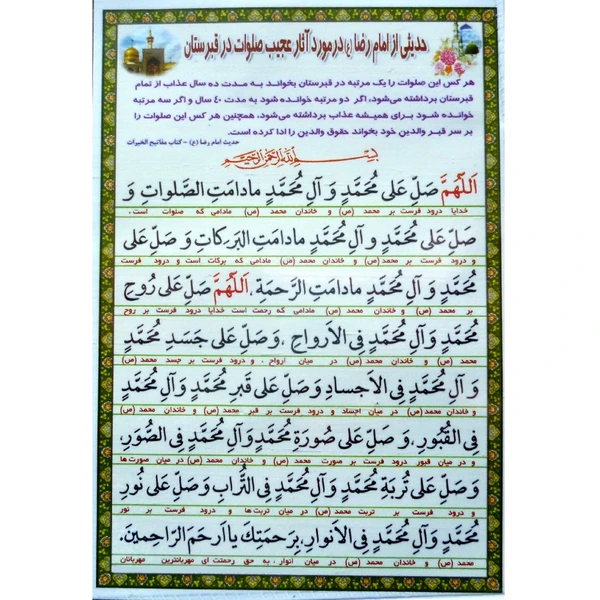 حدیثی از امام رضا (ع) در مورد آثار عجیب صلوات در قبرستان
هر کس این صلوات را یک مرتبه در قبرستان بخواند به مدت ده سال عذاب از تمام
قبرستان برداشته می‌شود، اگر دو مرتبه خوانده شود به مدت ۴۰ سال و اگر سه مرتبه
خوانده شود برای همیشه عذاب برداشته می‌شود، همچنین هر کس این صلوات را
بر سر قبر والدین خود بخواند حقوق والدین را ادا کرده است.
حدیث امام رضا (ع) - کتاب مفاتیح الخیرات
بسم الله الرحمن الرحیم
اَللّهُمَّ صَلِّ عَلى مُحَمَّدٍ وَ آلِ مُحَمَّدٍ مادامَتِ الصَّلَواتِ وَ
خدایا درود فرست بر محمد (ص) و خاندان محمد (ص) مادامی که صلوات است،
صَلِّ عَلى مُحَمَّدٍ و آلِ مُحَمَّدٍ مادامَتِ البَرَكاتِ وَ صَلِّ عَلى
و درود فرست بر محمد (ص) و خاندان محمد (ص) مادامی که برکات است و درود فرست
مُحَمَّدٍ وَ آلِ مُحَمَّدٍ مادامَتِ الرَّحمَةِ، اَللّهُمَّ صَلِّ عَلى رُوحِ
بر محمد (ص) و خاندان محمد (ص) مادامی که رحمت است خدایا درود فرست بر روح
مُحَمَّدٍ وَ آلِ مُحَمَّدٍ فِى الاَرواحِ، وَ صَلِّ عَلى جَسَدِ مُحَمَّدٍ
محمد (ص) و خاندان محمد (ص) در میان ارواح، و درود فرست بر جسد محمد (ص)
وَ آلِ مُحَمَّدٍ فِى الاَجسادِ وَ صَلِّ عَلى قَبرِ مُحَمَّدٍ وَ آلِ مُحَمَّدٍ
و خاندان محمد (ص) در میان اجساد و درود فرست بر قبر محمد (ص) و خاندان محمد (ص)
فِى القُبُورِ، وَ صَلِّ عَلى صُورَةِ مُحَمَّدٍ وَ آلِ مُحَمَّدٍ فِى الصُّوَرِ،
و در میان قبور درود فرست بر صورت محمد (ص) و خاندان محمد (ص) در میان صورت ها
وَ صَلِّ عَلى تُربَةِ مُحَمَّدٍ وَ آلِ مُحَمَّدٍ فِى التُّرابِ وَ صَلِّ عَلى نُورِ
و درود فرست بر تربت محمد (ص) و خاندان محمد (ص) در میان تربت ها و درود فرست بر نور
مُحَمَّدٍ وَ آلِ مُحَمَّدٍ فِى الاَنوارِ، بِرَحمَتِكَ يا اَرحَمَ الرّاحِمينَ.
محمد (ص) و خاندان محمد (ص) در میان انوار، به حق رحمتت ای مهربانترین مهربانان